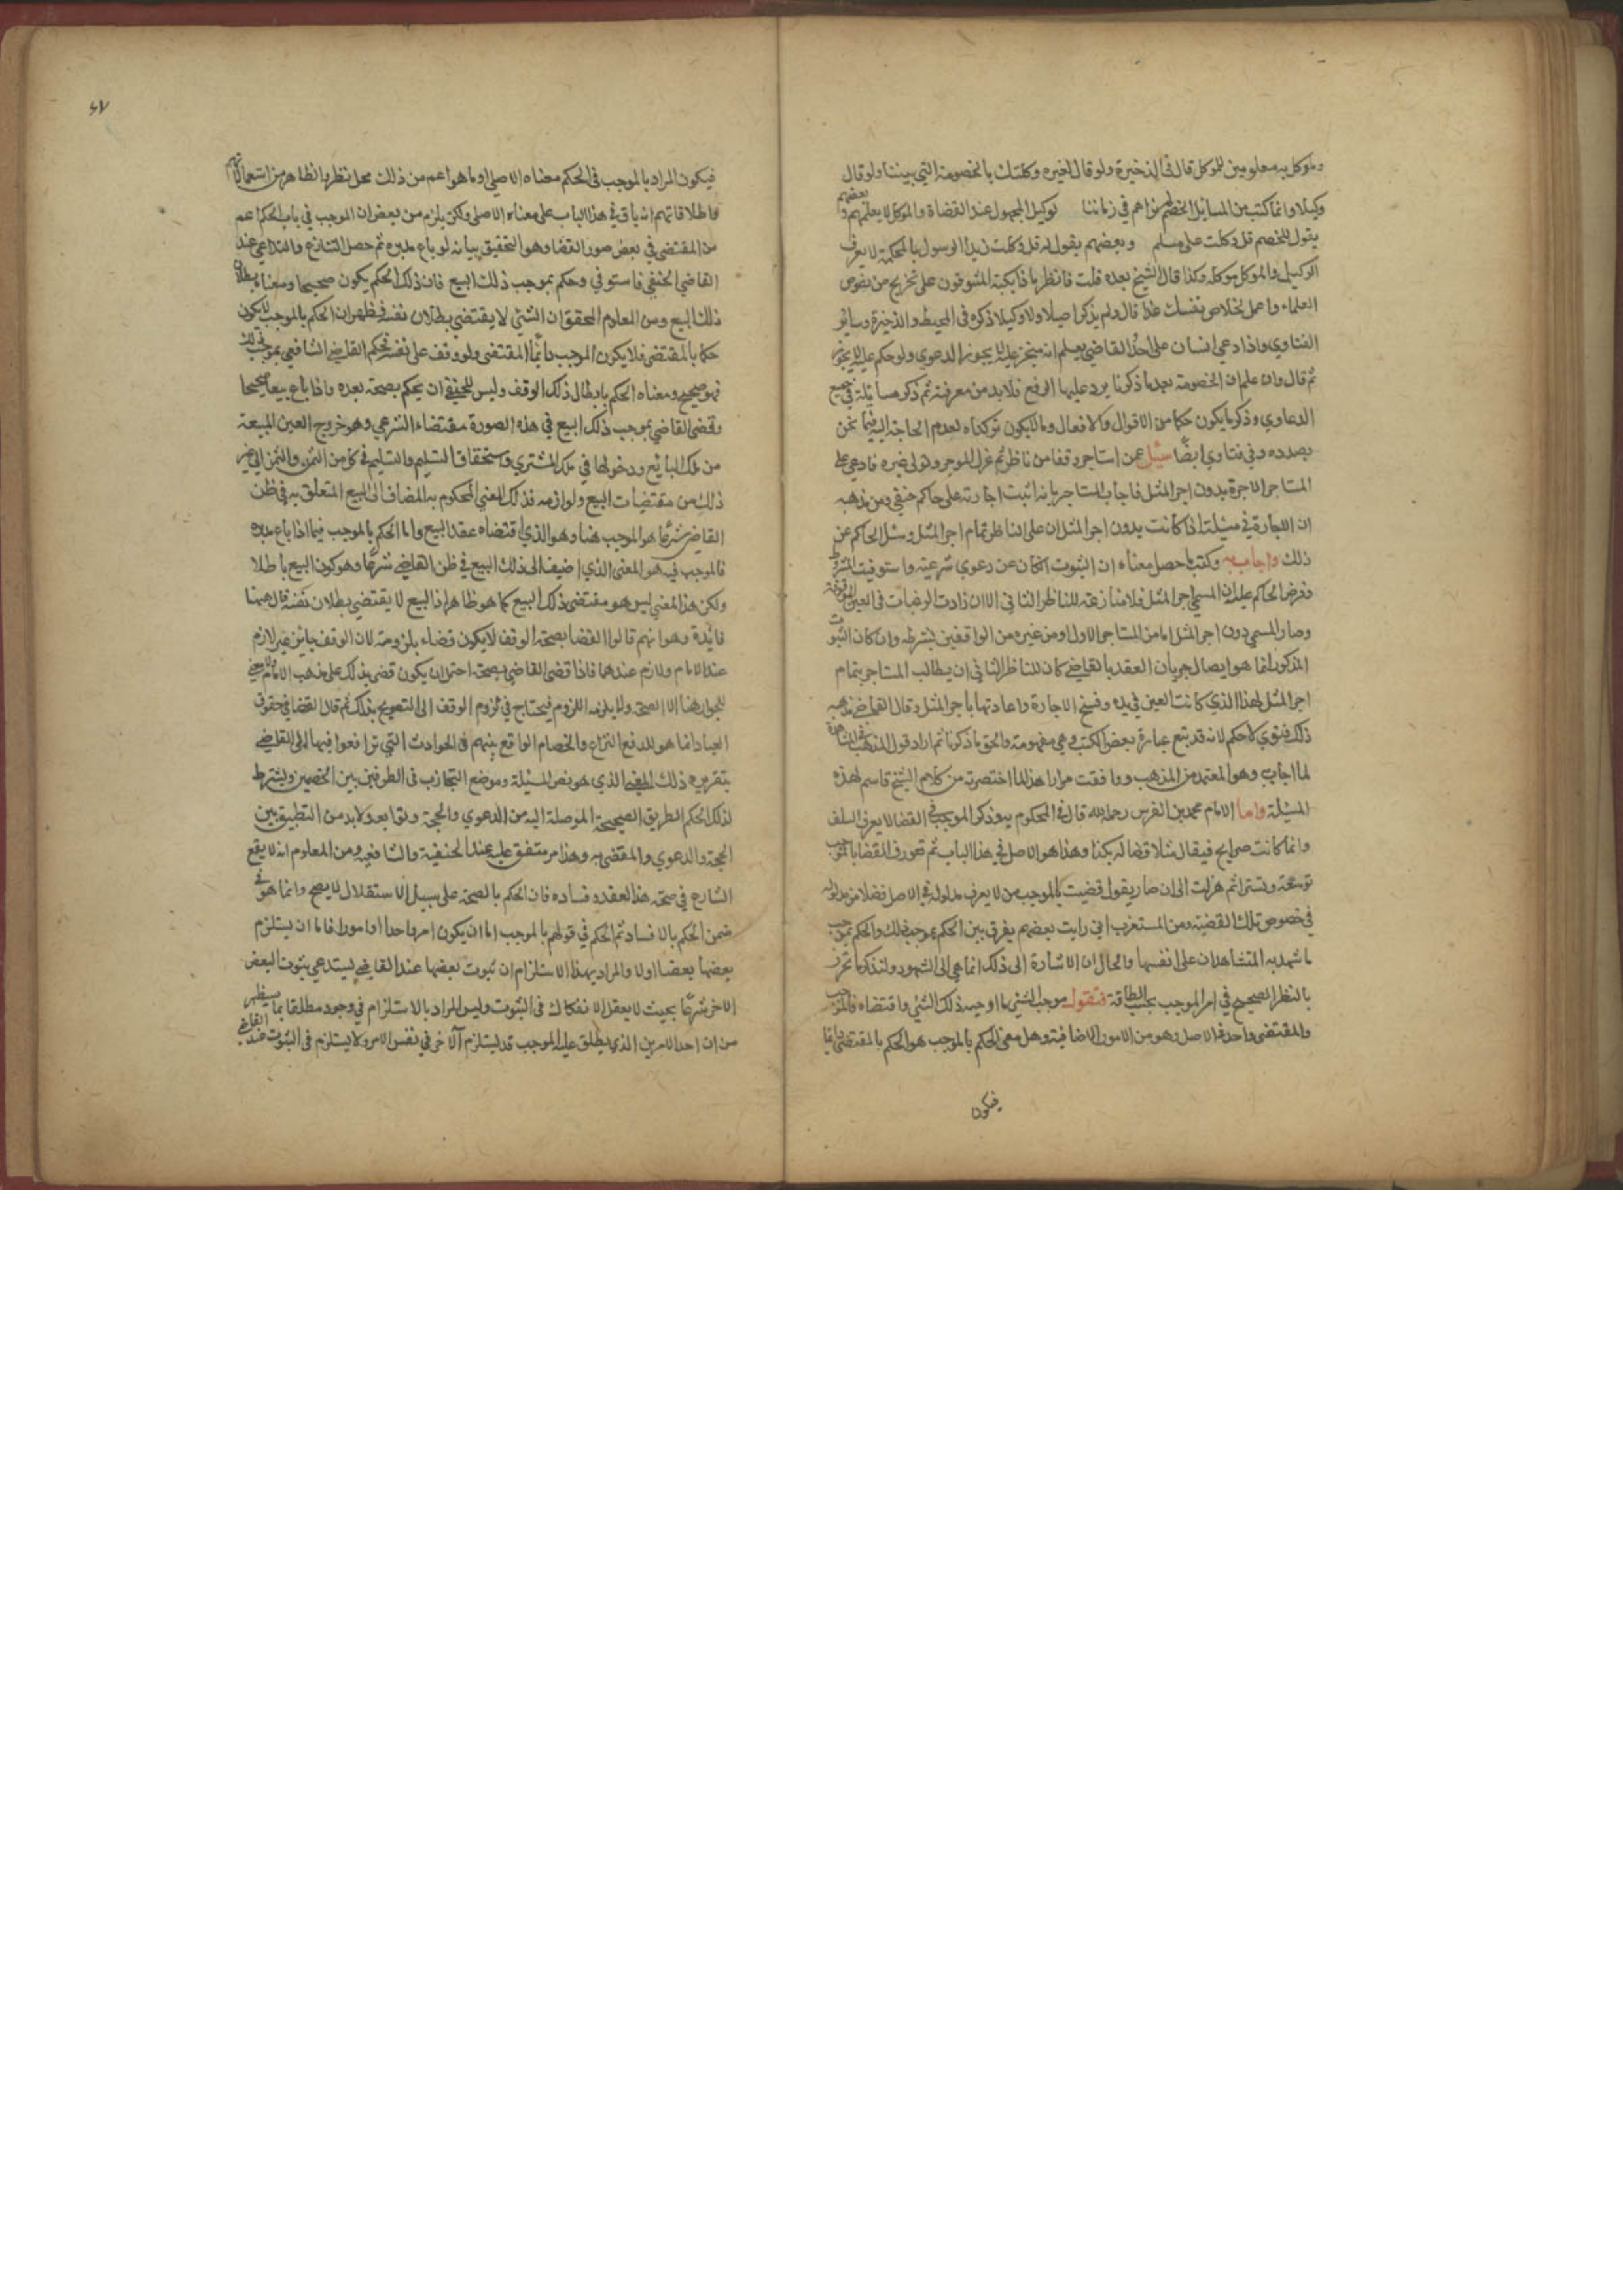 وموكل به معلومين للموكل قال في الذخيرة ولو قال لغيره وكلتك بالخصومة التي بيننا ولو قال
وكيلا وانما كتب من المسايل الخصم في زماننا توكيل المجهول عند القضاة والموكل لا يعلمهم وبعضهم
يقول للخصم قل وكلت على مسلم وبعضهم يقول له قل وكلت زيدا الرسول بالمحكمة لا يعرف
الوكيل والموكل موكله وكذا قال الشيخ بعده قلت فانظر ماذا يكتبه المتسوقون على تخريج من نصوص
العلماء واعمل بخلاص نفسك غدا قال ولم يذكر اصيلا ولا وكيلا ذكره في المحيط والذخيرة وسائر
الفتاوي واذا ادعى انسان على احد القاضي يعلم انه لا يجوز الدعوي ولو حكم عليه لا يجوز
ثم قال وان علم ان الخصومة بعد ما ذكرنا يرد عليها الرفع فلا بد من معرفته ثم ذكر مسائله في جميع
الدعاوي وذكر ما يكون حكما من الاقوال والافعال وما لا يكون تركناه لعدم الحاجة اليه فيما نحن
بصدده وفي فتاوي ايضا سئل عمن استاجر وقفا من ناظر ثم عزل الموجر وتولى غيره فادعى على
المستاجر الاجرة بدون اجر المثل فاجاب المستاجر بانه اثبت اجارته على حاكم حنفي ومن مذهبه
ان الاجارة في مسيلة اذا كانت بدون اجر المثل ان على الناظر تمام اجر المثل وسئل الحاكم عن
ذلك واجاب به وكتب ما حصل معناه ان الثبوت ان كان عن دعوي شرعية واستوفيت الشروط
فعرض الحاكم عليه ان المسمى اجر المثل فلا منازعة للناظر الثاني الا ان زادت الرغبات في العين الموقوفة
وصار المسمى دون اجر المثل اما من المستاجر الاول او من غيره من الواقفين بشرطه وان كان الثبوت
المذكور انما هو ايصال جريان العقد بالقاضي كان للناظر الثاني ان يطالب المستاجر بتمام
اجر المثل لهذا الذي كانت العين في يده وفسخ الاجارة واعادتها باجر المثل وقال القاضي مذهبه
ذلك فتوي لا حكم لانه قد يتبع عبارة بعض الكتب وهي مفهومة والحق ما ذكرنا ثم اراد قول المذهب
لما اجاب وهو المعتمد من المذهب ووافقت مرارا هذا ما اختصرته من كلام الشيخ قاسم لهذه
المسيلة واما الامام محمد بن الغرس رحمه الله قال في المحكوم به وذكر الموجب في القضا لا يعرف السلف
وانما كانت صرايح فيقال مثلا قضا له بكذا وهذا هو الاصل في هذا الباب ثم تعورف القضا بالموجب
توسعة وتستى ثم هزلت الى ان صار يقول قضيت بالموجب من لا يعرف مدلوله في الاصل فضلا من مدلوله
في خصوص تلك القضية ومن المستغرب اني رايت بعضهم يفرق بين الحكم بموجب ذلك والحكم بموجب
ما شهد به المتشاهدان على انفسهما والحال ان الاشارة الى ذلك انما هي الى الشهود ولنذكر ما تحرر
بالنظر الصحيح في امر الموجب بحسب الطاقة فنقول موجب الشي ما اوجبه ذلك الشي واقتضاه فالموجب
والمقتضى واحد في الاصل وهو من الامور الاضافية وهل معنى الحكم بالموجب هو الحكم بالمقتضى دائما
فيكون
٤٧
فيكون المراد بالموجب في الحكم معناه الاصلي او ما هو اعم من ذلك محل نظر بالظاهر من استعمالاتهم
واطلاقاتهم انه باق في هذا الباب على معناه الاصلي ولكن يلزم من بعض ان الموجب في باب الحكم اعم
من المقتضى في بعض صور القضا وهو التحقيق بيانه لو باع مدبره ثم حصل التنازع والتداعي عند
القاضي الحنفي فاستوفي وحكم بموجب ذلك البيع فان ذلك الحكم يكون صحيحا ومعناه بطلان
ذلك البيع ومن المعلوم المحقق ان الشي لا يقتضي بطلان نفسه فظهر ان الحكم بالموجب لا يكون
حكما بالمقتضى فلا يكون الموجب دائما المقتضى ولو وقف على نفسه فحكم القاضي الشافعي بموجب ذلك
فهو صحيح ومعناه الحكم بابطال ذلك الوقف وليس للحنفي ان يحكم بصحته بعده واذا باع بيعا صحيحا
وقضى القاضي بموجب ذلك البيع في هذه الصورة مقتضاه الشرعي وهو خروج العين المبيعة
من ملك البائع ودخولها في ملك المشتري واستحقاق التسليم والتسليم في كل من الثمن والمثمن الى غير
ذلك من مقتضيات البيع ولوازمه فذلك المعنى المحكوم به المضاف الى البيع المتعلق به في ظن
القاضي شرعا هو الموجب هنا وهو الذي اقتضاه عقد البيع واما الحكم بالموجب فيما اذا باع مدبره
فالموجب فيه هو المعنى الذي اضيف الى ذلك البيع في ظن القاضي شرعا وهو كون البيع باطلا
ولكن هذا المعنى ليس هو مقتضى ذلك البيع كما هو ظاهر اذ البيع لا يقتضي بطلان نفسه قال هنا
فائدة وهو انهم قالوا القضا بصحة الوقف لا يكون قضاء بلزومه لان الوقف جايز غير لازم
عند الامام ولازم عندهما فاذا قضى القاضي بصحته احتمل ان يكون قضى بذلك على مذهب الامام
للجواز هنا الا الصحة ولا يلزمه اللزوم فيحتاج في لزوم الوقف الى التصريح بذلك ثم قال القضا في حقوق
العباد انما هو لدفع النزاع والخصام الواقع بينهم في الحوادث التي ترافعوا فيها الى القاضي
بتقريره ذلك المعنى الذي هو نص المسيلة وموضع التجاذب في الطرفين بين الخصمين ويشترط
لذلك الحكم الطريق الصحيحة الموصلة اليه من الدعوي والحجة وتوابعه ولا بد من التطبيق بين
الحجة والدعوي والمقضى به وهذا امر متفق عليه عند الحنفية والشافعية ومن المعلوم انه لا يقع
التنازع في صحة هذا العقد وفساده فان الحكم بالصحة على سبيل الاستقلال لا يصح وانما هو في
ضمن الحكم بالافساد ثم الحكم في قولهم بالموجب اما ان يكون امرا واحدا او امورا فاما ان يستلزم
بعضها بعضا او لا والمراد بهذا الاستلزام ان ثبوت بعضها عند القاضي يستدعي ثبوت البعض
الاخر شرعا بحيث لا يعقل الانفكاك في الثبوت وليس المراد بالاستلزام في وجود مطلقا بما سيظهر
من ان احد الامرين الذي يطلق عليه الموجب قد يستلزم الآخر في نفس الامر ولا يستلزم في الثبوت عند القاضي